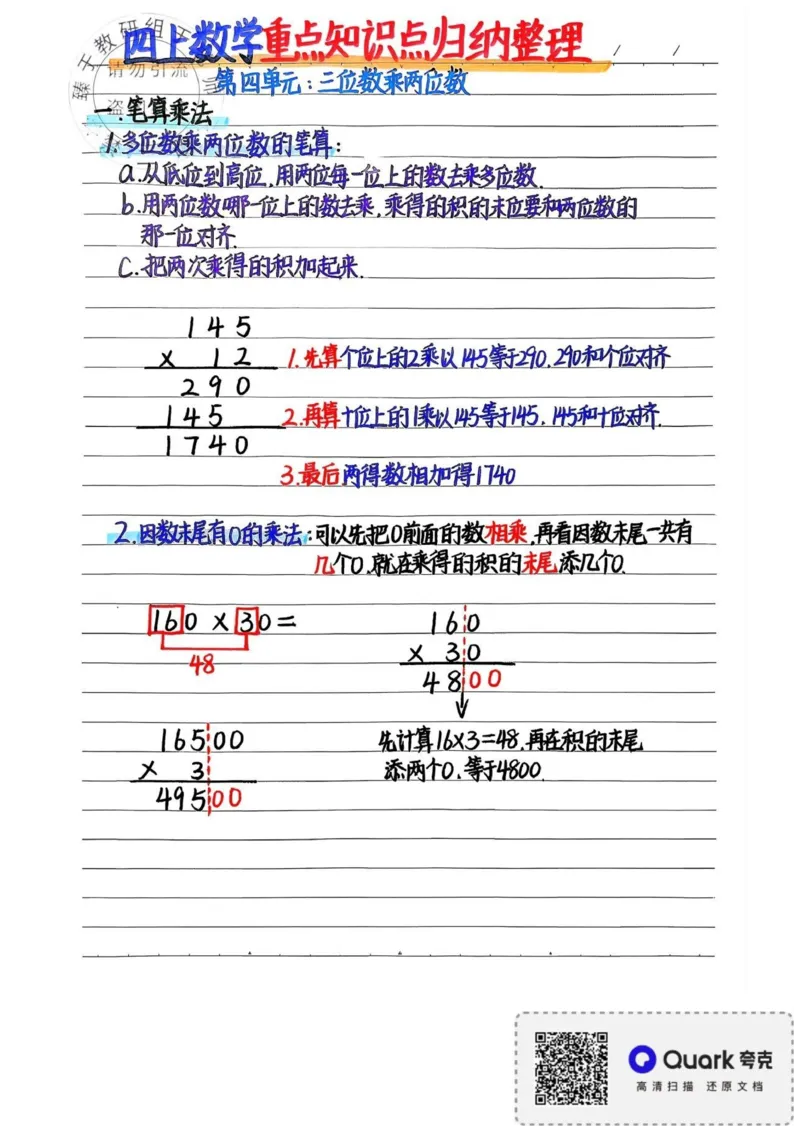 四上数学重点知识点归纳整理
臻于教研组
请勿引流
第四单元:三位数乘两位数
一.笔算乘法
1.多位数乘两位数的笔算:
a.从低位到高位,用两位每一位上的数去乘多位数.
b.用两位数哪一位上的数去乘,乘得的积的末位要和两位数的
那一位对齐.
C.把两次乘得的积加起来.
145
× 12 1.先算个位上的2乘以145等于290.290和个位对齐
290
145 2.再算十位上的1乘以145等于145.145和十位对齐.
1740
3.最后两得数相加得1740
2.因数末尾有0的乘法:可以先把0前面的数相乘,再看因数末尾一共有
几个0.就在乘得的积的末尾添几个0.
160×30=
48
160
× 30
4800
16500
× 3
49500
先计算16×3=48,再在积的末尾
添两个0.等于4800.
Quark夸克
高清扫描 还原文档